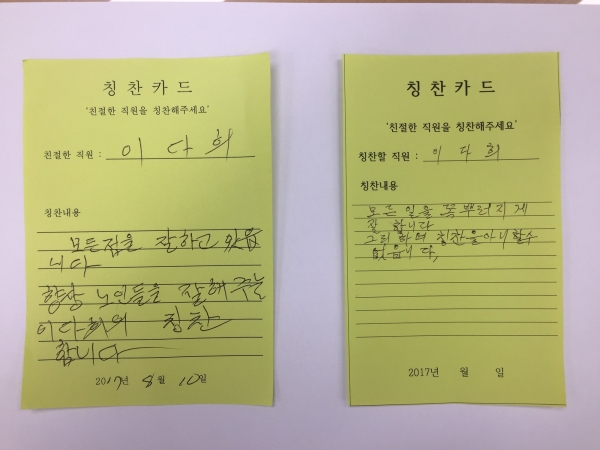 칭찬카드
'친절한 직원을 칭찬해주세요'
친절한 직원 : 이다희
칭찬내용
모든점을 잘하고 있읍
니다
항상 노인들을 잘해주늘
이다희의 칭찬
합니다
2017년 8월 10일
칭찬카드
'친절한 직원을 칭찬해주세요'
칭찬할 직원 : 이다희
칭찬내용
모든 일을 똑뿌러지게
잘 합니다
그리하여 칭찬을아니할수
없읍니다,
2017년 월 일